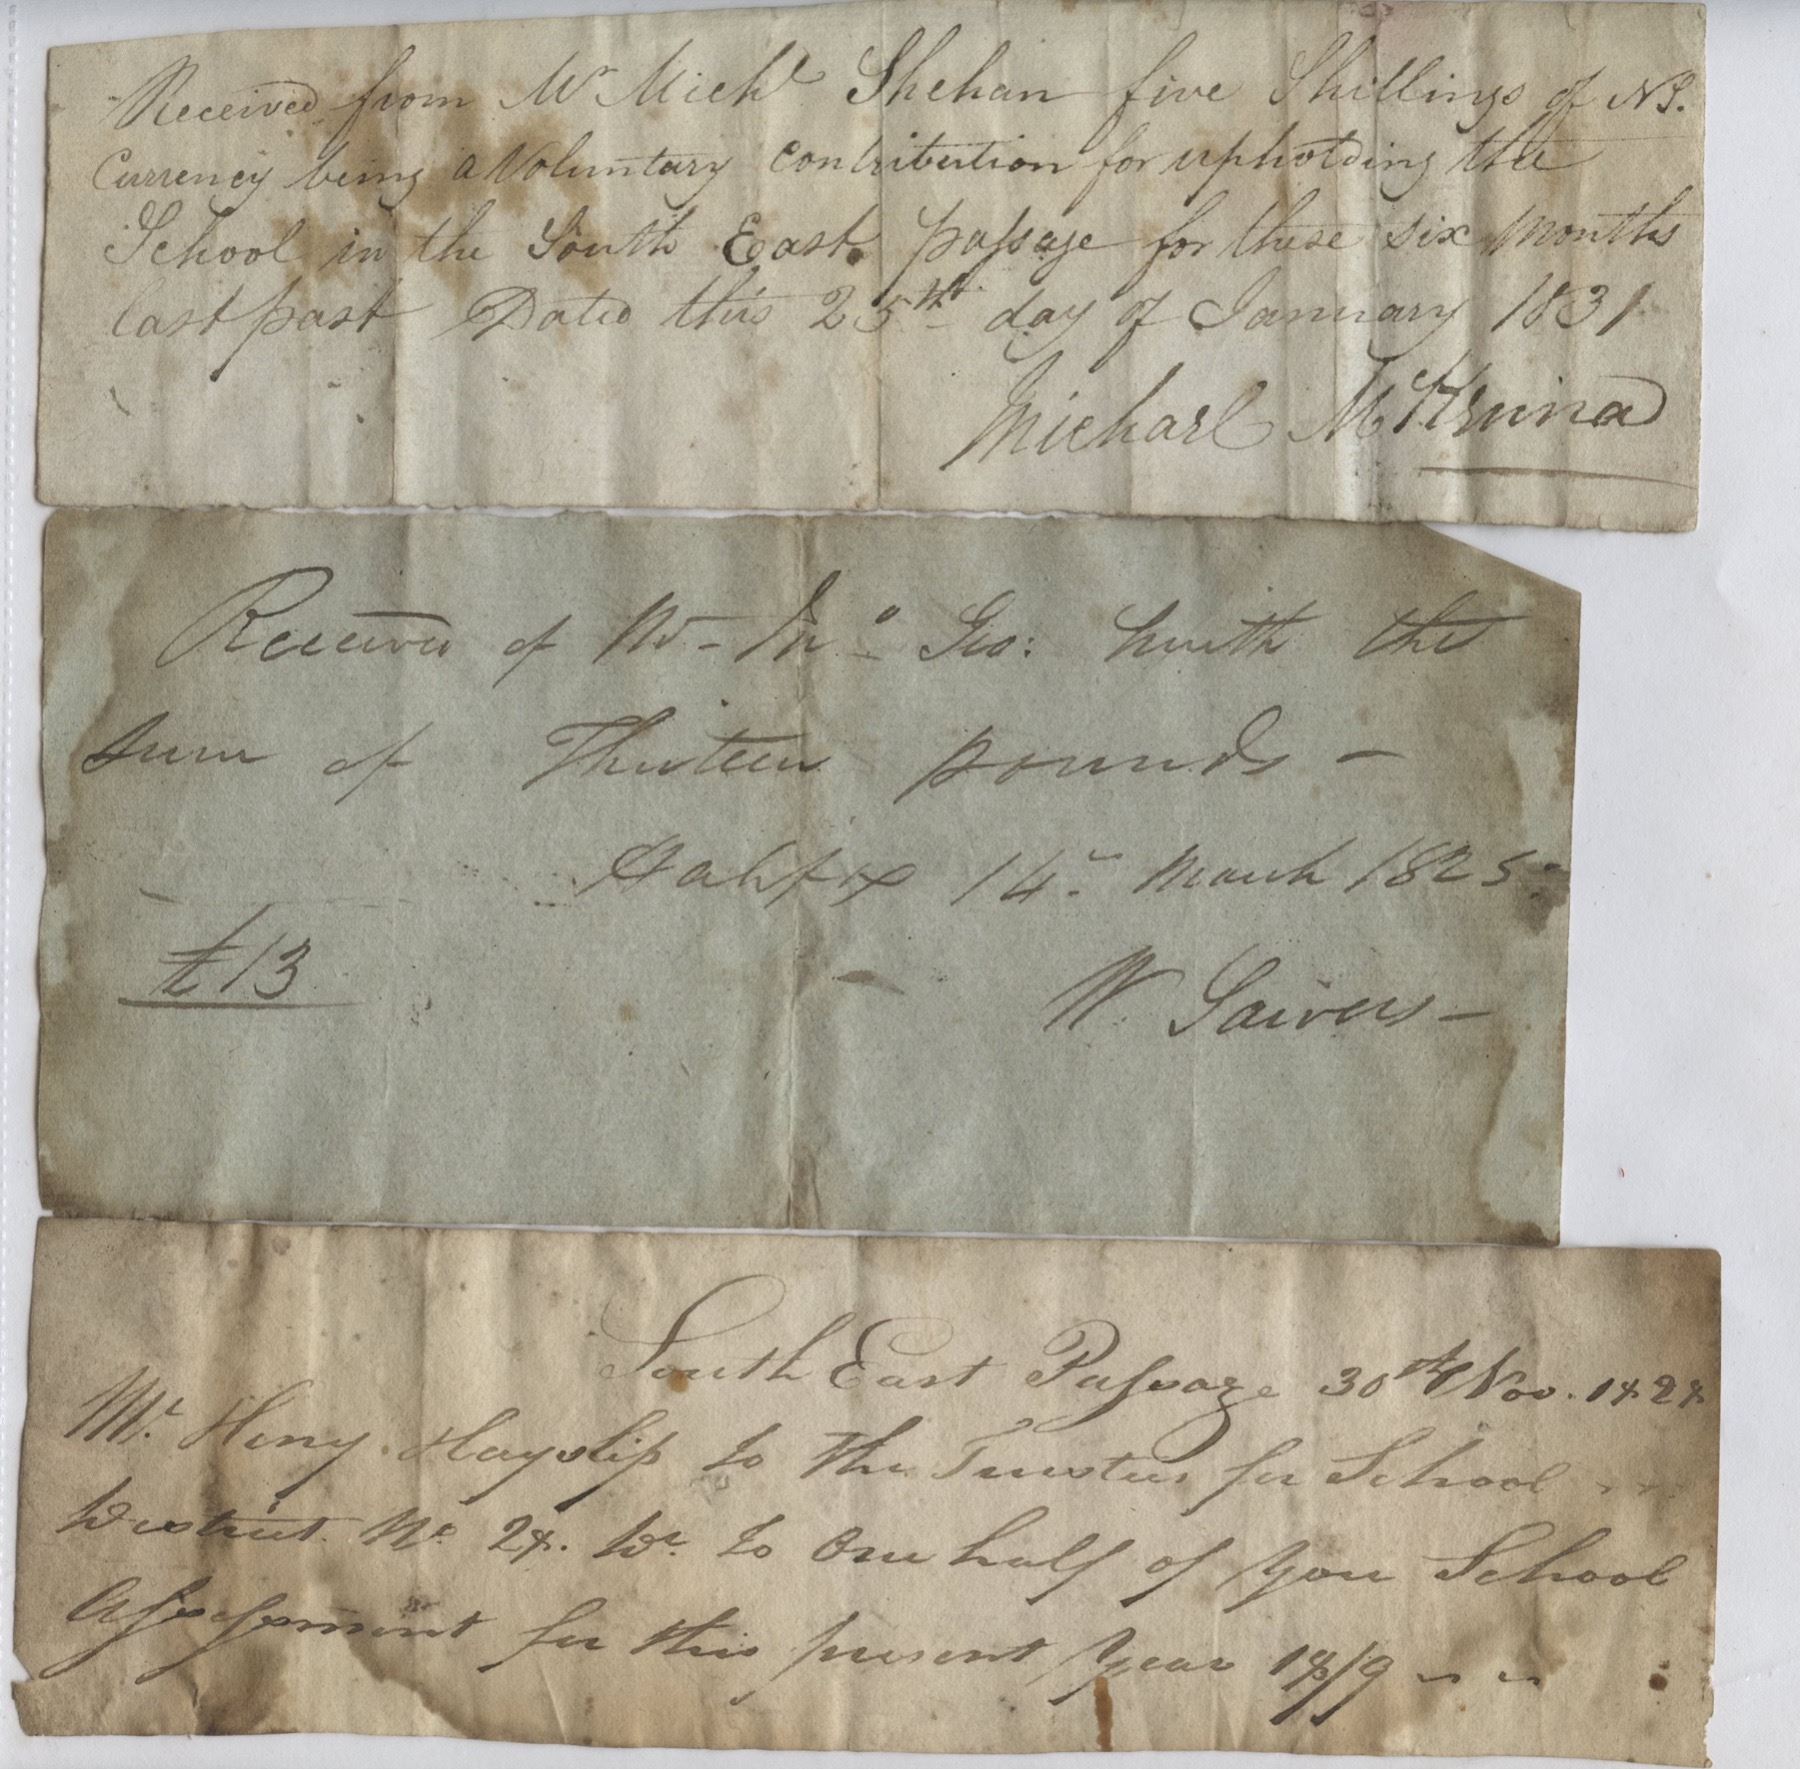 Received from Mr Michl Shehan five Shillings of NS.
Currency being a Voluntary Contribution for upholding the
School in the South East passage for these six Months
last past Dated this 25th day of January 1831
Michael
Received of Mr Geo: the
sum of Thirteen pounds –
Halifax 14th March 1825
£13
W.
South East Passage 30th Nov. 1828
Mr. Heny Hayslip to the Trustees for School
District No. 28. Dr. to One half of your School
Assessment for this present Year 18/9